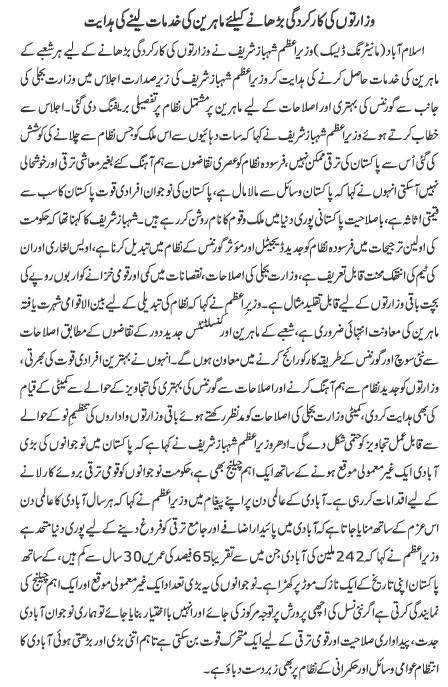 وزارتوں کی کارکردگی بڑھانے کیلئے ماہرین کی خدمات لینے کی ہدایت
اسلام آباد (مانیٹرنگ ڈیسک) وزیراعظم شہباز شریف نے وزارتوں کی کارکردگی بڑھانے کے لیے ہر شعبے کے
ماہرین کی خدمات حاصل کرنے کی ہدایت کر وزیراعظم شہباز شریف کی زیر صدارت اجلاس میں وزارت بجلی کی
جانب سے گورننس کی بہتری اور اصلاحات کے لیے ماہرین پر مشتمل نظام پر تفصیلی بریفنگ دی گئی۔ اجلاس سے
خطاب کرتے ہوئے وزیراعظم شہباز شریف نے کہا کہ سات دہائیوں سے اس ملک کو جس نظام سے چلانے کی کوشش
کی گئی اُس سے پاکستان کی ترقی ممکن نہیں، فرسودہ نظام کو عصری تقاضوں سے ہم آہنگ کئے بغیر معاشی ترقی اور خوشحالی
نہیں آسکتی انہوں نے کہا کہ پاکستان وسائل سے مالا مال ہے، پاکستان کی نوجوان افرادی قوت پاکستان کا سب سے
قیمتی اثاثہ ہے، باصلاحیت پاکستانی پوری دنیا میں ملک و قوم کا نام روشن کر رہے ہیں۔ شہباز شریف کا کہنا تھا کہ حکومت
کی اولین ترجیحات میں فرسودہ نظام کو جدید ڈیجیٹل اور مؤثر گورننس کے نظام میں تبدیل کرنا ہے، اویس لغاری اور ان
کی ٹیم کی انتھک محنت قابل تعریف ہے، وزارت بجلی کی اصلاحات، نقصانات میں کمی اور قومی خزانے کو اربوں روپے کی
بچت باقی وزارتوں کے لیے قابل تقلید مثال ہے۔ وزیراعظم نے کہا کہ نظام کی تبدیلی کے لیے بین الاقوامی شہرت یافتہ
ماہرین کی معاونت انتہائی ضروری ہے، شعبے کے ماہرین اور کنسلٹنٹس جدید دور کے تقاضوں کے مطابق اصلاحات
سے نئی سوچ اور گورننس کے طریقہ کار کو رائج کرنے میں معاون ہوں گے۔ انہوں نے بہترین افرادی قوت کی بھرتی،
وزارتوں کو جدید نظام سے ہم آہنگ کرنے اور اصلاحات سے گورننس کی بہتری کی تجاویز کے حوالے سے کمیٹی کے قیام
کی بھی ہدایت کر دی، کمیٹی وزارت بجلی کی اصلاحات کو مدنظر رکھتے ہوئے باقی وزارتوں و اداروں کی تنظیم نو کے حوالے
سے قابل عمل تجاویز کو حتمی شکل دے گی۔ ادھر وزیراعظم شہباز شریف نے کہا ہے کہ پاکستان میں نوجوانوں کی بڑی
آبادی ایک غیر معمولی موقع ہونے کے ساتھ ایک اہم چیلنج بھی ہے، حکومت نوجوانوں کو قومی ترقی بروئے کار لانے
کے لیے اقدامات کر رہی ہے۔ آبادی کے عالمی دن پر اپنے پیغام میں وزیراعظم نے کہا کہ ہر سال آبادی کا عالمی دن
اس عزم کے ساتھ منایا جاتا ہے کہ آبادی میں پائیدار اضافے اور جامع ترقی کو فروغ دینے کے لیے پوری دنیا متحد ہے
وزیراعظم نے کہا کہ 242 ملین کی آبادی جن میں سے تقریبا 65 فیصد کی عمریں 30 سال سے کم ہیں، کے ساتھ
پاکستان اپنی تاریخ کے ایک نازک موڑ پر کھڑا ہے۔ نوجوانوں کی یہ بڑی تعداد ایک غیر معمولی موقع اور ایک اہم چیلنج کی
نمائندگی کرتی ہے اگر نئی نسل کی اچھی پرورش پر توجہ مرکوز کی جائے اور انہیں بااختیار بنایا جائے تو ہماری نوجوان آبادی
جدت، پیداواری صلاحیت اور قومی ترقی کے لیے ایک متحرک قوت بن سکتی ہے تاہم اتنی بڑی اور بڑھتی ہوئی آبادی کا
انتظام عوامی وسائل اور حکمرانی کے نظام پر بھی زبردست دباؤ ہے۔